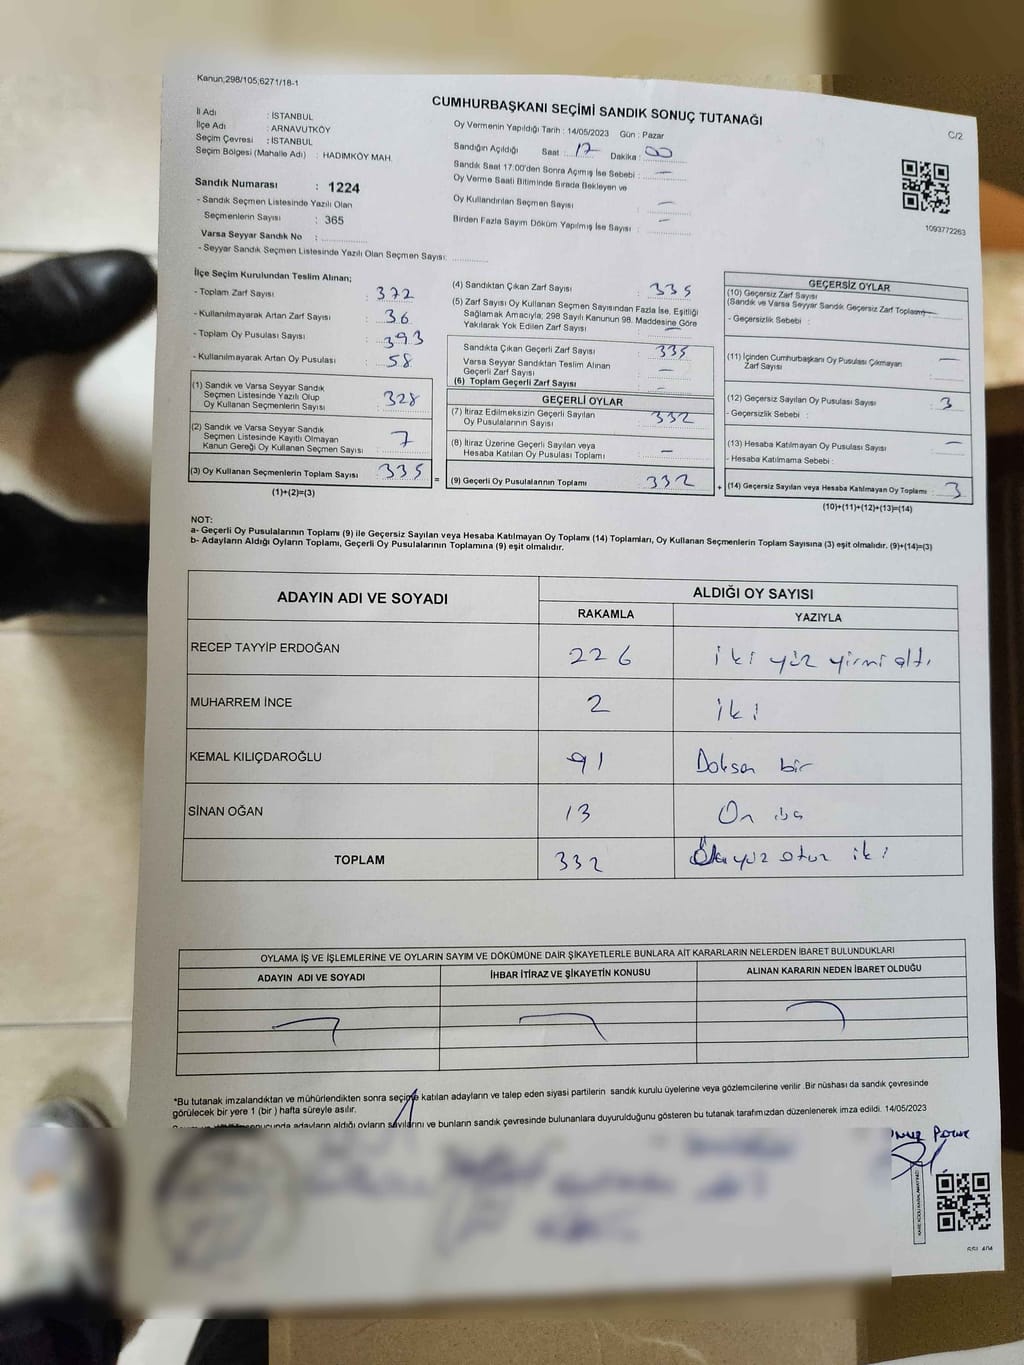 Kanun;298/105,6271/18-1
CUMHURBAŞKANI SEÇİMİ SANDIK SONUÇ TUTANAĞI
C/2
İl Adı : İSTANBUL
İlçe Adı : ARNAVUTKÖY
Seçim Çevresi : İSTANBUL
Seçim Bölgesi (Mahalle Adı) : HADIMKÖY MAH.
Sandık Numarası : 1224
- Sandık Seçmen Listesinde Yazılı Olan
Seçmenlerin Sayısı : 365
Varsa Seyyar Sandık No :
- Seyyar Sandık Seçmen Listesinde Yazılı Olan Seçmen Sayısı:
Oy Vermenin Yapıldığı Tarih : 14/05/2023 Gün : Pazar
Sandığın Açıldığı Saat : 17 Dakika : 00
Sandık Saat 17:00'den Sonra Açımış İse Sebebi : —
Oy Verme Saati Bitiminde Sırada Bekleyen ve
Oy Kullandırılan Seçmen Sayısı : —
Birden Fazla Sayım Döküm Yapılmış İse Sayısı : —
1093772263
İlçe Seçim Kurulundan Teslim Alınan;
- Toplam Zarf Sayısı : 372
- Kullanılmayarak Artan Zarf Sayısı : 36
- Toplam Oy Pusulası Sayısı : 393
- Kullanılmayarak Artan Oy Pusulası : 58
(1) Sandık ve Varsa Seyyar Sandık
Seçmen Listesinde Yazılı Olup
Oy Kullanan Seçmenlerin Sayısı : 328
(2) Sandık ve Varsa Seyyar Sandık
Seçmen Listesinde Kayıtlı Olmayan
Kanun Gereği Oy Kullanan Seçmen Sayısı : 7
(3) Oy Kullanan Seçmenlerin Toplam Sayısı : 335
(1)+(2)=(3)
=
(4) Sandıktan Çıkan Zarf Sayısı : 335
(5) Zarf Sayısı Oy Kullanan Seçmen Sayısından Fazla İse, Eşitliği
Sağlamak Amacıyla; 298 Sayılı Kanunun 98. Maddesine Göre
Yakılarak Yok Edilen Zarf Sayısı : —
Sandıkta Çıkan Geçerli Zarf Sayısı : 335
Varsa Seyyar Sandıktan Teslim Alınan
Geçerli Zarf Sayısı : —
(6) Toplam Geçerli Zarf Sayısı : —
GEÇERLİ OYLAR
(7) İtiraz Edilmeksizin Geçerli Sayılan
Oy Pusulalarının Sayısı : 332
(8) İtiraz Üzerine Geçerli Sayılan veya
Hesaba Katılan Oy Pusulası Toplamı : —
(9) Geçerli Oy Pusulalarının Toplamı : 332
+
GEÇERSİZ OYLAR
(10) Geçersiz Zarf Sayısı
(Sandık ve Varsa Seyyar Sandık Geçersiz Zarf Toplamı) —
- Geçersizlik Sebebi :
(11) İçinden Cumhurbaşkanı Oy Pusulası Çıkmayan
Zarf Sayısı : —
(12) Geçersiz Sayılan Oy Pusulası Sayısı : 3
- Geçersizlik Sebebi :
(13) Hesaba Katılmayan Oy Pusulası Sayısı : —
- Hesaba Katılmama Sebebi :
(14) Geçersiz Sayılan veya Hesaba Katılmayan Oy Toplamı : 3
(10)+(11)+(12)+(13)=(14)
NOT:
a- Geçerli Oy Pusulalarının Toplamı (9) ile Geçersiz Sayılan veya Hesaba Katılmayan Oy Toplamı (14) Toplamları, Oy Kullanan Seçmenlerin Toplam Sayısına (3) eşit olmalıdır. (9)+(14)=(3)
b- Adayların Aldığı Oyların Toplamı, Geçerli Oy Pusulalarının Toplamına (9) eşit olmalıdır.
ADAYIN ADI VE SOYADI ALDIĞI OY SAYISI
RAKAMLA YAZIYLA
RECEP TAYYİP ERDOĞAN 226 iki yüz yirmi altı
MUHARREM İNCE 2 iki
KEMAL KILIÇDAROĞLU 91 Doksan bir
SİNAN OĞAN 13 On
TOPLAM 332 otuz iki
OYLAMA İŞ VE İŞLEMLERİNE VE OYLARIN SAYIM VE DÖKÜMÜNE DAİR ŞİKAYETLERLE BUNLARA AİT KARARLARIN NELERDEN İBARET BULUNDUKLARI
ADAYIN ADI VE SOYADI İHBAR İTİRAZ VE ŞİKAYETİN KONUSU ALINAN KARARIN NEDEN İBARET OLDUĞU
*Bu tutanak imzalandıktan ve mühürlendikten sonra seçime katılan adayların ve talep eden siyasi partilerin sandık kurulu üyelerine veya gözlemcilerine verilir .Bir nüshası da sandık çevresinde
görülecek bir yere 1 (bir ) hafta süreyle asılır.
adayların aldığı oyların sayılarını ve bunların sandık çevresinde bulunanlara duyurulduğunu gösteren bu tutanak tarafımızdan düzenlenerek imza edildi. 14/05/2023